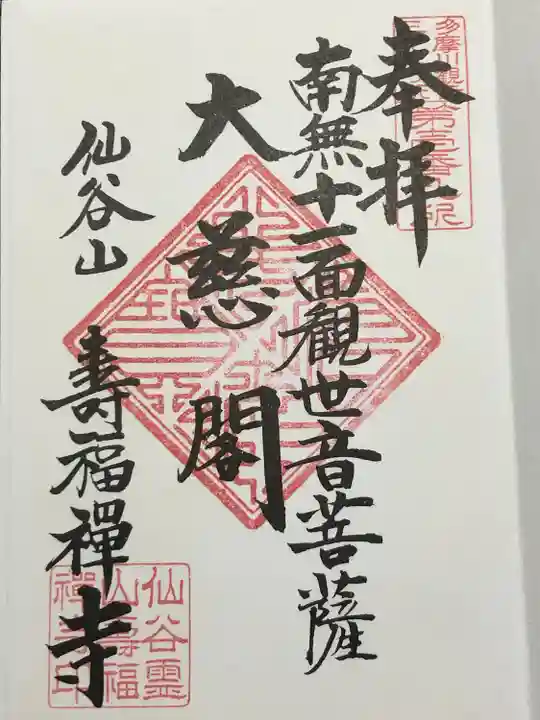 奉拝
南無十一面觀世音菩薩
大慈閣
仙谷山
壽福禪寺
多摩川観
第壱番
仙谷霊
山壽福
禪寺印